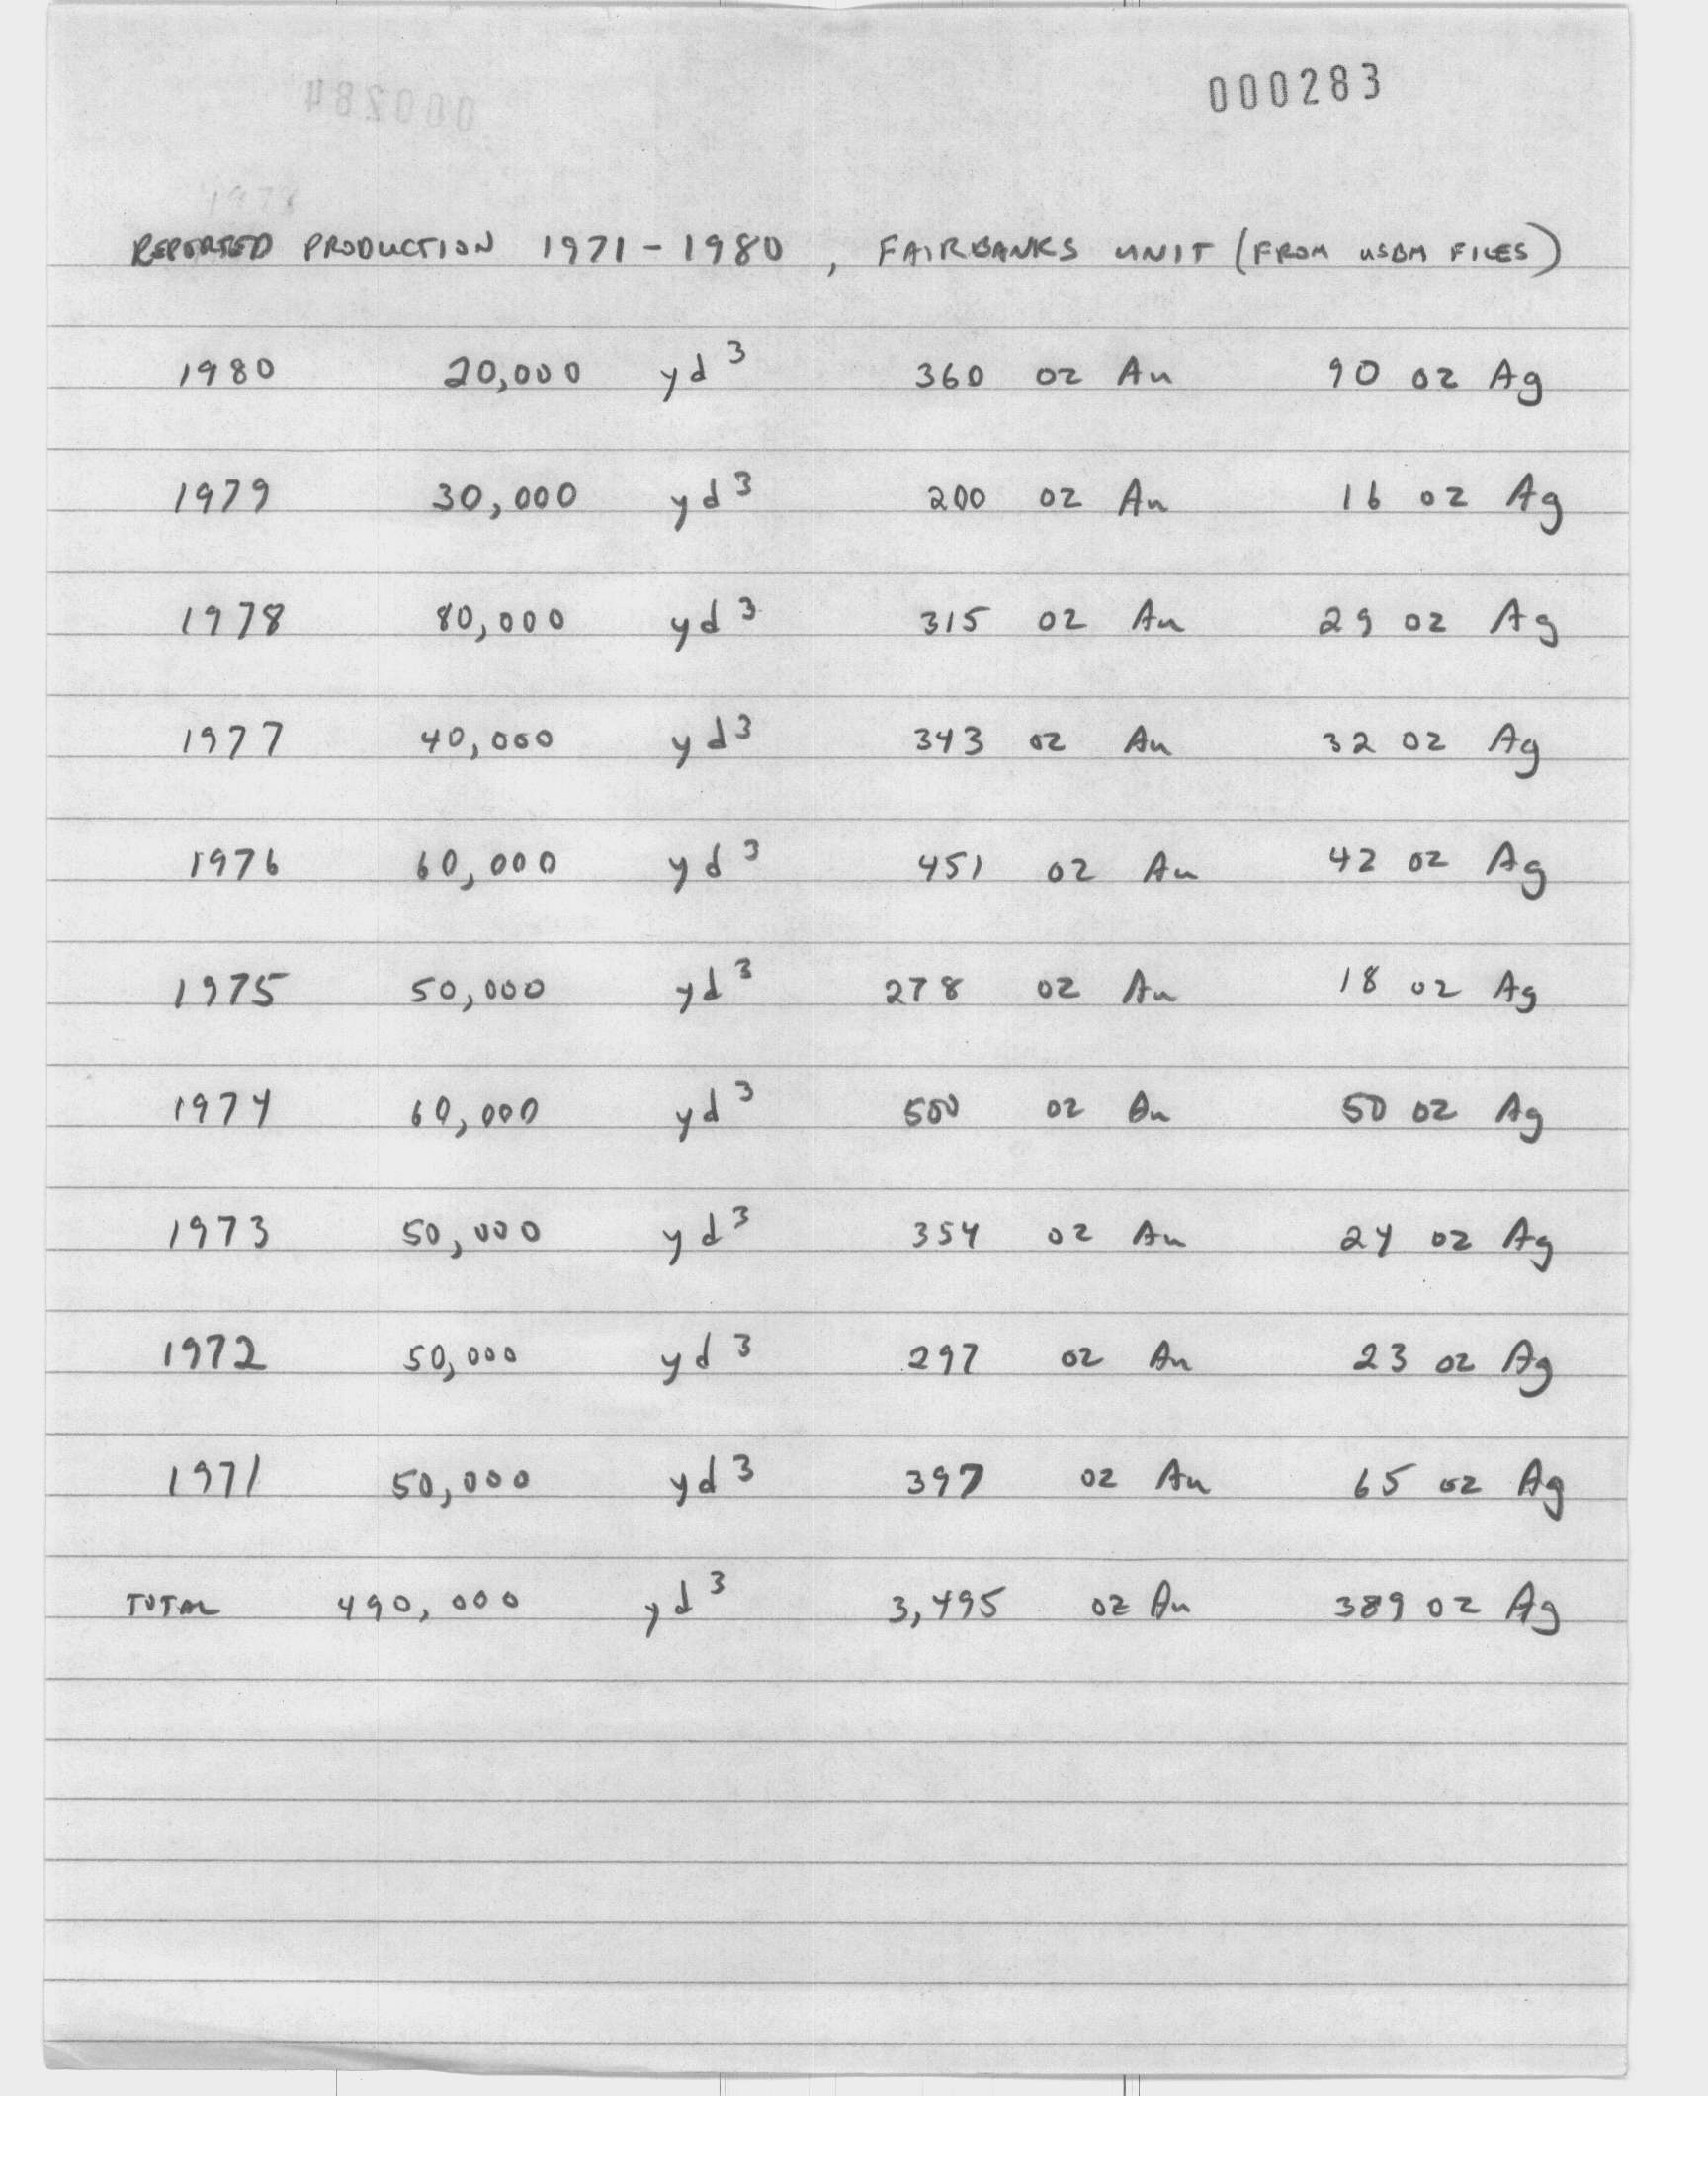 000283
000284
1978
REPORTED PRODUCTION 1971-1980, FAIRBANKS UNIT (FROM USBM FILES)
1980 20,000 yd³ 360 oz Au 90 oz Ag
1979 30,000 yd³ 200 oz Au 16 oz Ag
1978 80,000 yd³ 315 oz Au 29 oz Ag
1977 40,000 yd³ 343 oz Au 32 oz Ag
1976 60,000 yd³ 451 oz Au 42 oz Ag
1975 50,000 yd³ 278 oz Au 18 oz Ag
1974 60,000 yd³ 500 oz Au 50 oz Ag
1973 50,000 yd³ 354 oz Au 24 oz Ag
1972 50,000 yd³ 297 oz Au 23 oz Ag
1971 50,000 yd³ 397 oz Au 65 oz Ag
TOTAL 490,000 yd³ 3,495 oz Au 389 oz Ag